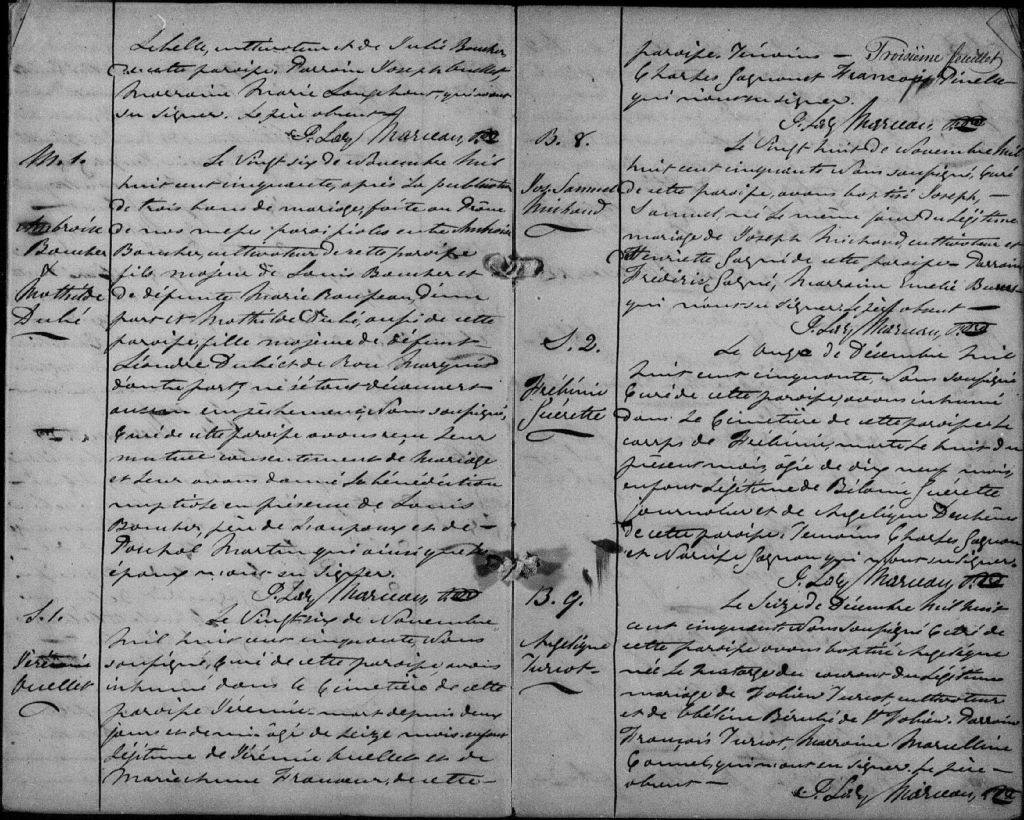 Lebelle, cultivateur et de Julie Boucher
de cette paroisse. Parrain Joseph Ouellet
Marraine Marie Longchant, qui n'ont
su signer. Le père absent
P. Laz Marceau, Ptre
M. 1.
Ambroise
Boucher
&
Mathilde
Dubé
Le Vingt six de Novembre Mil
huit cent cinquante, après la publication
de trois bans de mariage, faite au Prône
de nos messes paroissiales entre Ambroise
Boucher, cultivateur de cette paroisse
fils majeur de Louis Boucher et
de défunte Marie d'une
part et Mathilde Dubé, aussi de cette
paroisse, fille majeure de défunt
Léandre Dubé et de
d'autre part; ne s'étant découvert
aucun empêchement, Nous soussigné,
Curé de cette paroisse avons reçu leur
mutuel consentement de mariage
et leur avons donné la bénédiction
nuptiale en présence de Louis
Boucher, père de l'époux et de
Paschal Martin qui ainsi que les
époux n'ont su signer.
P. Laz Marceau, Ptre
S. 1.
Jérémie
Ouellet
Le Vingt six de Novembre
Mil huit cent cinquante, Nous
soussigné, Curé de cette paroisse avons
inhumé dans le Cimetière de cette
paroisse Jérémie mort depuis deux
jours et demi âgé de seize mois, enfant
légitime de Jérémie Ouellet et de
Marie Anne Francoeur, de cette
paroisse. Témoins Troisième feuillet
Charles Gagnon et François Pinelle
qui n'ont su signer.
P. Laz Marceau, Ptre
B. 8.
Jos. Samuel
Michaud
Le Vingt huit de Novembre Mil
huit cent cinquante Nous soussigné, Curé
de cette paroisse, avons baptisé Joseph,
Samuel, né le même jour du légitime
mariage de Joseph Michaud cultivateur et
Henriette Gagné de cette paroisse. Parrain
Frédéric Gagné, Marraine Emelie
qui n'ont su signer. Le père absent
P. Laz Marceau, Ptre
S. 2.
Frébénie
Guérette
Le onze de Décembre Mil
huit cent cinquante, Nous soussigné
Curé de cette paroisse, avons inhumé
dans le Cimetière de cette paroisse le
corps de Frébénie, morte le huit du
présent mois, âgée de dix neuf mois,
enfant légitime de Bélonie Guérette
journalier et de Angelique Deschênes
de cette paroisse. Témoins Charles Gagnon
et Narcisse Gagnon qui n'ont su signer.
P. Laz Marceau, Ptre
B. 9.
Angelique
Turcot
Le Seize de Décembre Mil huit
cent cinquante Nous soussigné Curé de
cette paroisse avons baptisé Angelique
née le quatorze du courant du légitime
mariage de Fabien Turcot, cultivateur
et de Bérubé de St Fabien. Parrain
François Turcot, Marraine Marcelline
qui n'ont su signer. Le père
absent
P. Laz Marceau, Ptre